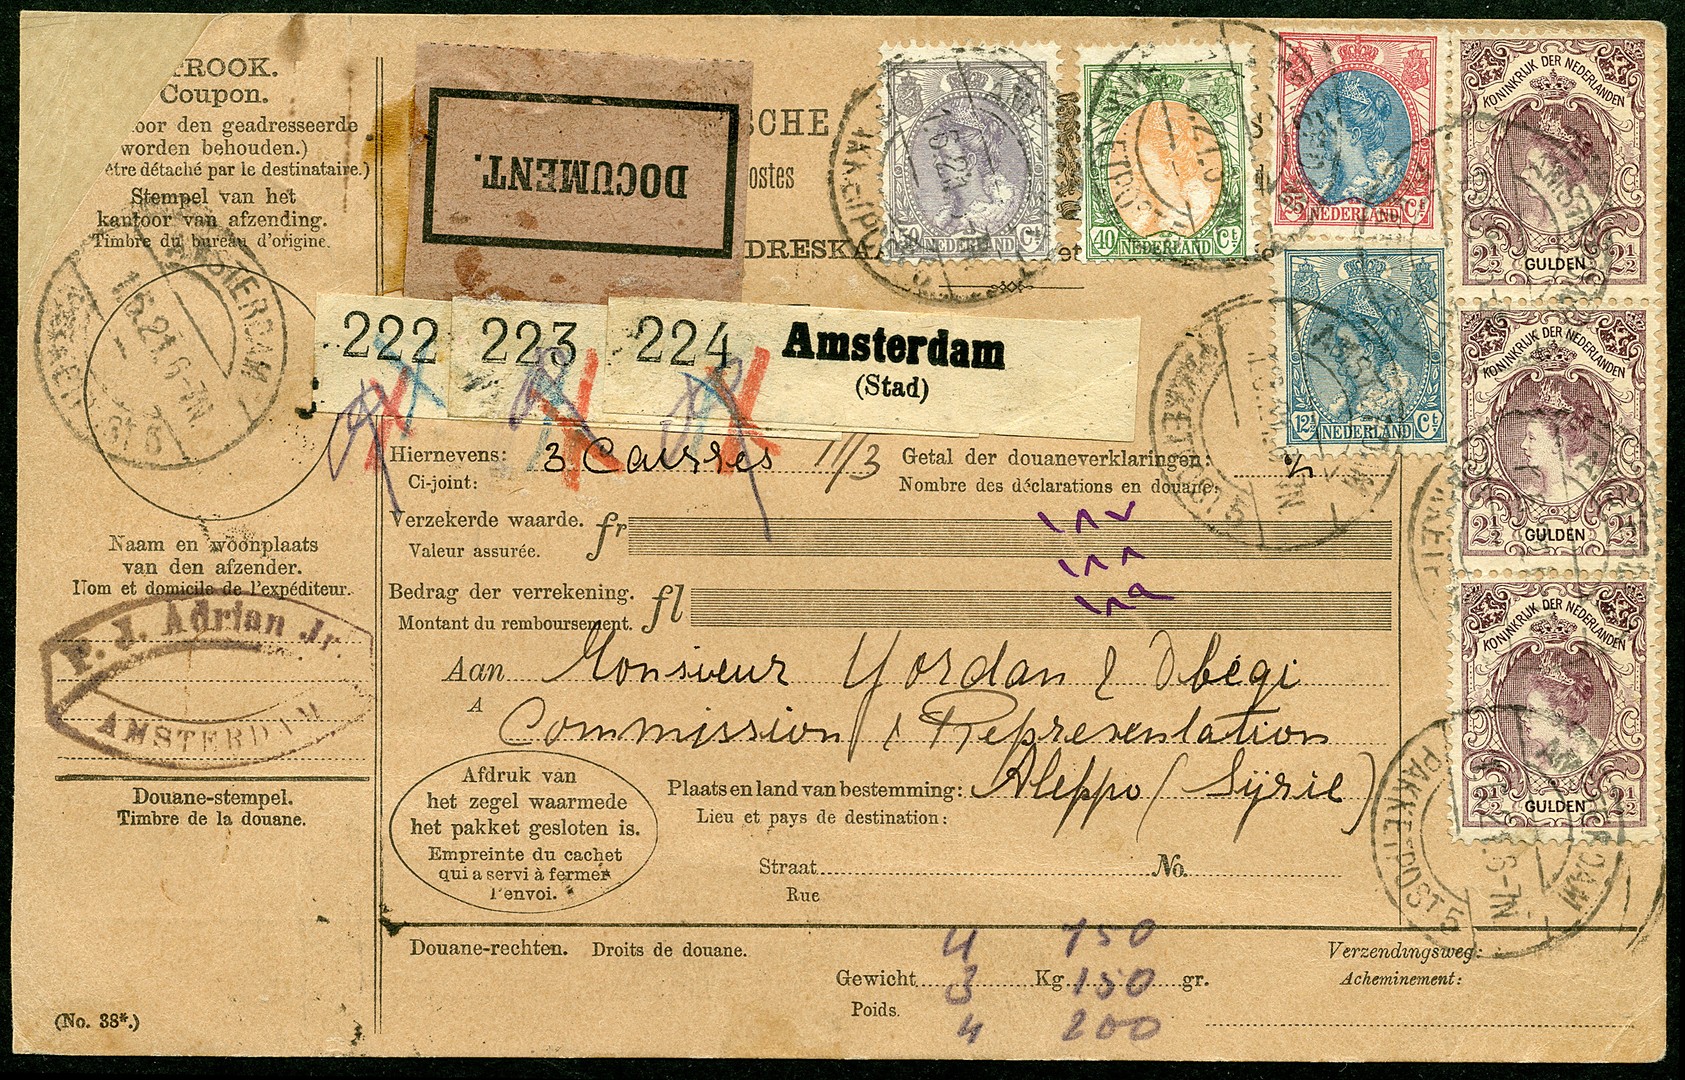 TROOK.
Coupon.
oor den geadresseerde
worden behouden.)
être détaché par le destinataire.)
Stempel van het
kantoor van afzending.
Timbre du bureau d'origine.
AMSTERDAM
1.6.21.6-7N
Naam en woonplaats
van den afzender.
Nom et domicile de l'expéditeur.
P. J. Adrian Jr.
AMSTERDAM
Douane-stempel.
Timbre de la douane.
(No. 38*.)
DOCUMENT.
SCHE
ostes
DRESKAA
et
50 NEDERLAND Ct
40 NEDERLAND Ct
25 NEDERLAND Ct
12½ NEDERLAND Ct
KONINKRIJK DER NEDERLANDEN
2½ GULDEN 2½
KONINKRIJK DER NEDERLANDEN
2½ GULDEN 2½
KONINKRIJK DER NEDERLANDEN
2½ GULDEN 2½
AMSTERDAM
PAKKETPOST 5
222 223 224 Amsterdam
(Stad)
Hiernevens: 3 Caisses 11/3 Getal der douaneverklaringen:
Ci-joint: Nombre des déclarations en douane:
Verzekerde waarde. fr
Valeur assurée.
Bedrag der verrekening. fl
Montant du remboursement.
Aan Monsieur Yordan & Obégi
A
Commission & Representation
Afdruk van
het zegel waarmede
het pakket gesloten is.
Empreinte du cachet
qui a servi à fermer
l'envoi.
Plaats en land van bestemming: Aleppo (Syrie)
Lieu et pays de destination:
Straat No.
Rue
Douane-rechten. Droits de douane.
4 750
Gewicht 3 Kg 150 gr.
Poids. 4 200
Verzendingsweg:
Acheminement: